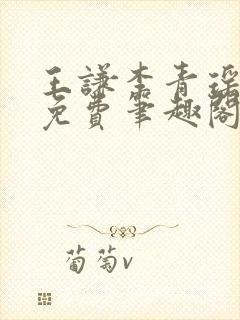 王謙李青瑤
免費筆趣閣
葡萄v